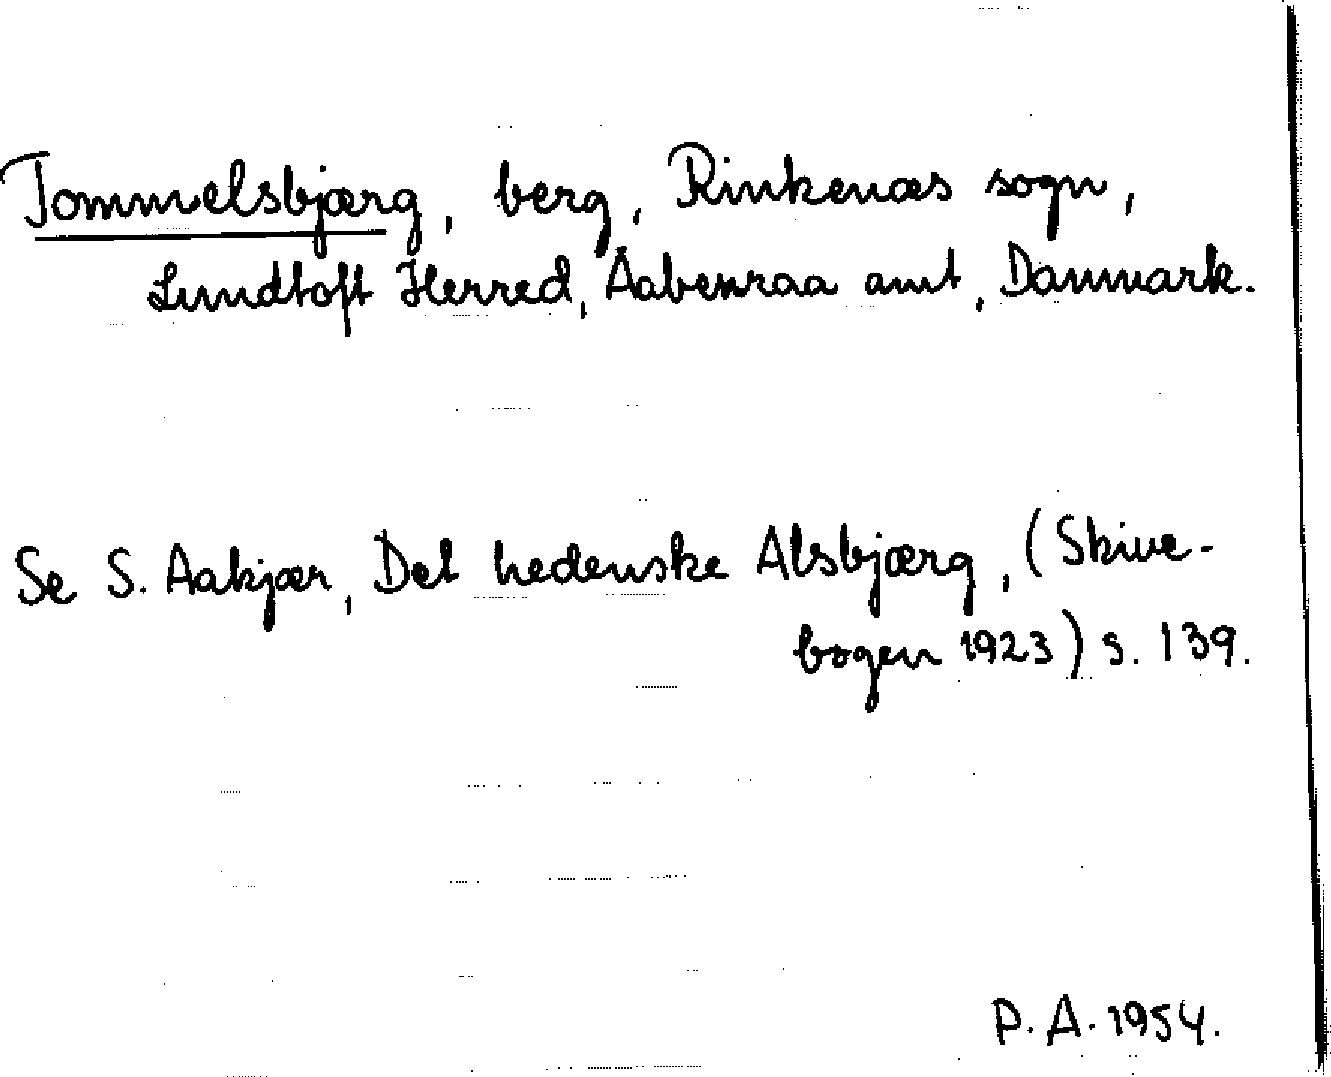 Tommelsbjærg, berg, Rinkenæs sogn,
Lundtoft Herred, Aabenraa amt, Danmark.
Se S. Aakjær, Det hedenske Alsbjærg, (Skive-
bogen 1923) s. 139.
P. A. 1954.